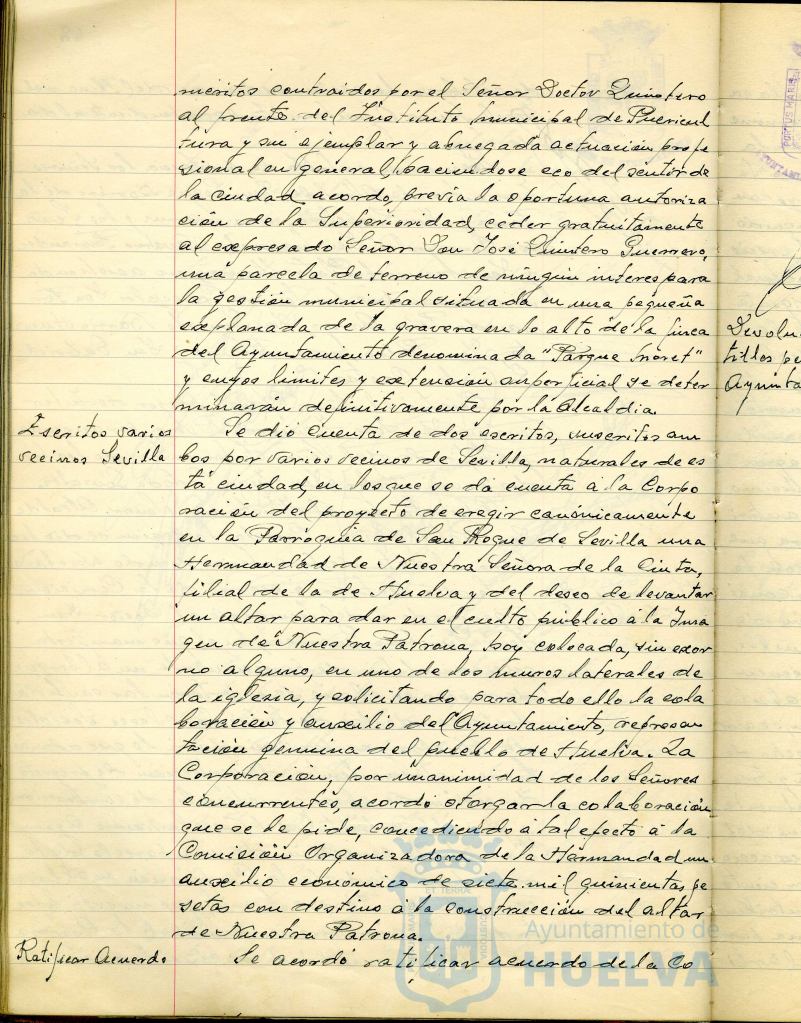 meritos contraidos por el Señor Doctor Quintero
al frente del Instituto Municipal de Puericul
tura y su ejemplar y abnegada actuación profe
sional en general, haciendose eco del sentir de
la ciudad acordo, previa la oportuna autoriza
ción de la Superioridad, ceder gratuitamente
al expresado Señor Don José Quintero Guerrero,
una parcela de terreno de ningún interes para
la gestión municipal situada en una pequeña
explanada de la gravera en lo alto de la finca
del Ayuntamiento denominada "Parque Moret"
y cuyos limites y extensión superficial se deter
minarán definitivamente por la Alcaldia.
Escritos varios
vecinos Sevilla
Se dió cuenta de dos escritos, suscritos am
bos por varios vecinos de Sevilla, naturales de es
tá ciudad, en los que se dá cuenta á la Corpo
ración del proyecto de eregir canónicamente
en la Parroquia de San Roque de Sevilla una
Hermandad de Nuestra Señora de la Cinta,
filial de la de Huelva y del deseo de levantar
un altar para dar en el culto público á la Ima
gen de Nuestra Patrona, hoy colocada, sin exor
no alguno, en uno de los muros laterales de
la iglesia, y solicitando para todo ello la cola
boración y auxilio del Ayuntamiento, represen
tación genuina del pueblo de Huelva. La
Corporación, por unanimidad de los Señores
concurrentes, acordó otorgar la colaboración
que se le pide, concediendo á tal efecto á la
Comisión Organizadora de la Hermandad un
auxilio económico de siete mil quinientas pe
setas con destino á la construcción del altar
de Nuestra Patrona.
Ratificar Acuerdo
Se acordó ratificar acuerdo de la Co
Devolu
tillos pe
Ayunta
Ayuntamiento de
HUELVA